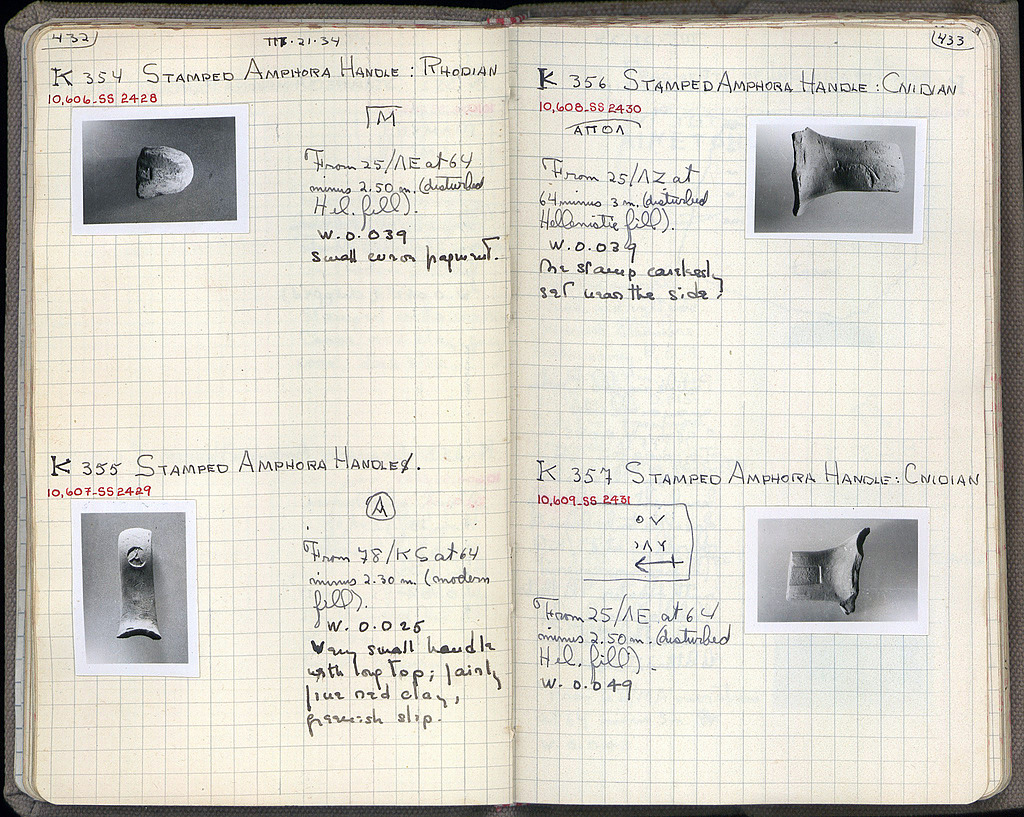 432
III·21·34
K 354 STAMPED AMPHORA HANDLE : RHODIAN
10,606_SS 2428
ΓΜ
From 25/ΛE at 64
minus 2.50 m. (disturbed
Hel. fill).
W. 0.039
Small curved fragment.
K 355 STAMPED AMPHORA HANDLE.
10,607_SS 2429
A
From 78/ΚϚ at 64
minus 2.30 m. (modern
fill).
W. 0.025
Very small handle
with long top; fairly
fine red clay,
greenish slip.
433
K 356 STAMPED AMPHORA HANDLE : CNIDIAN
10,608_SS 2430
ΑΠΟΛ
From 25/ΛΖ at
64 minus 3 m. (disturbed
Hellenistic fill).
W. 0.039
The stamp carelessly
set near the side?
K 357 STAMPED AMPHORA HANDLE : CNIDIAN
10,609_SS 2431
From 25/ΛE at 64
minus 2.50 m. (disturbed
Hel. fill).
W. 0.049